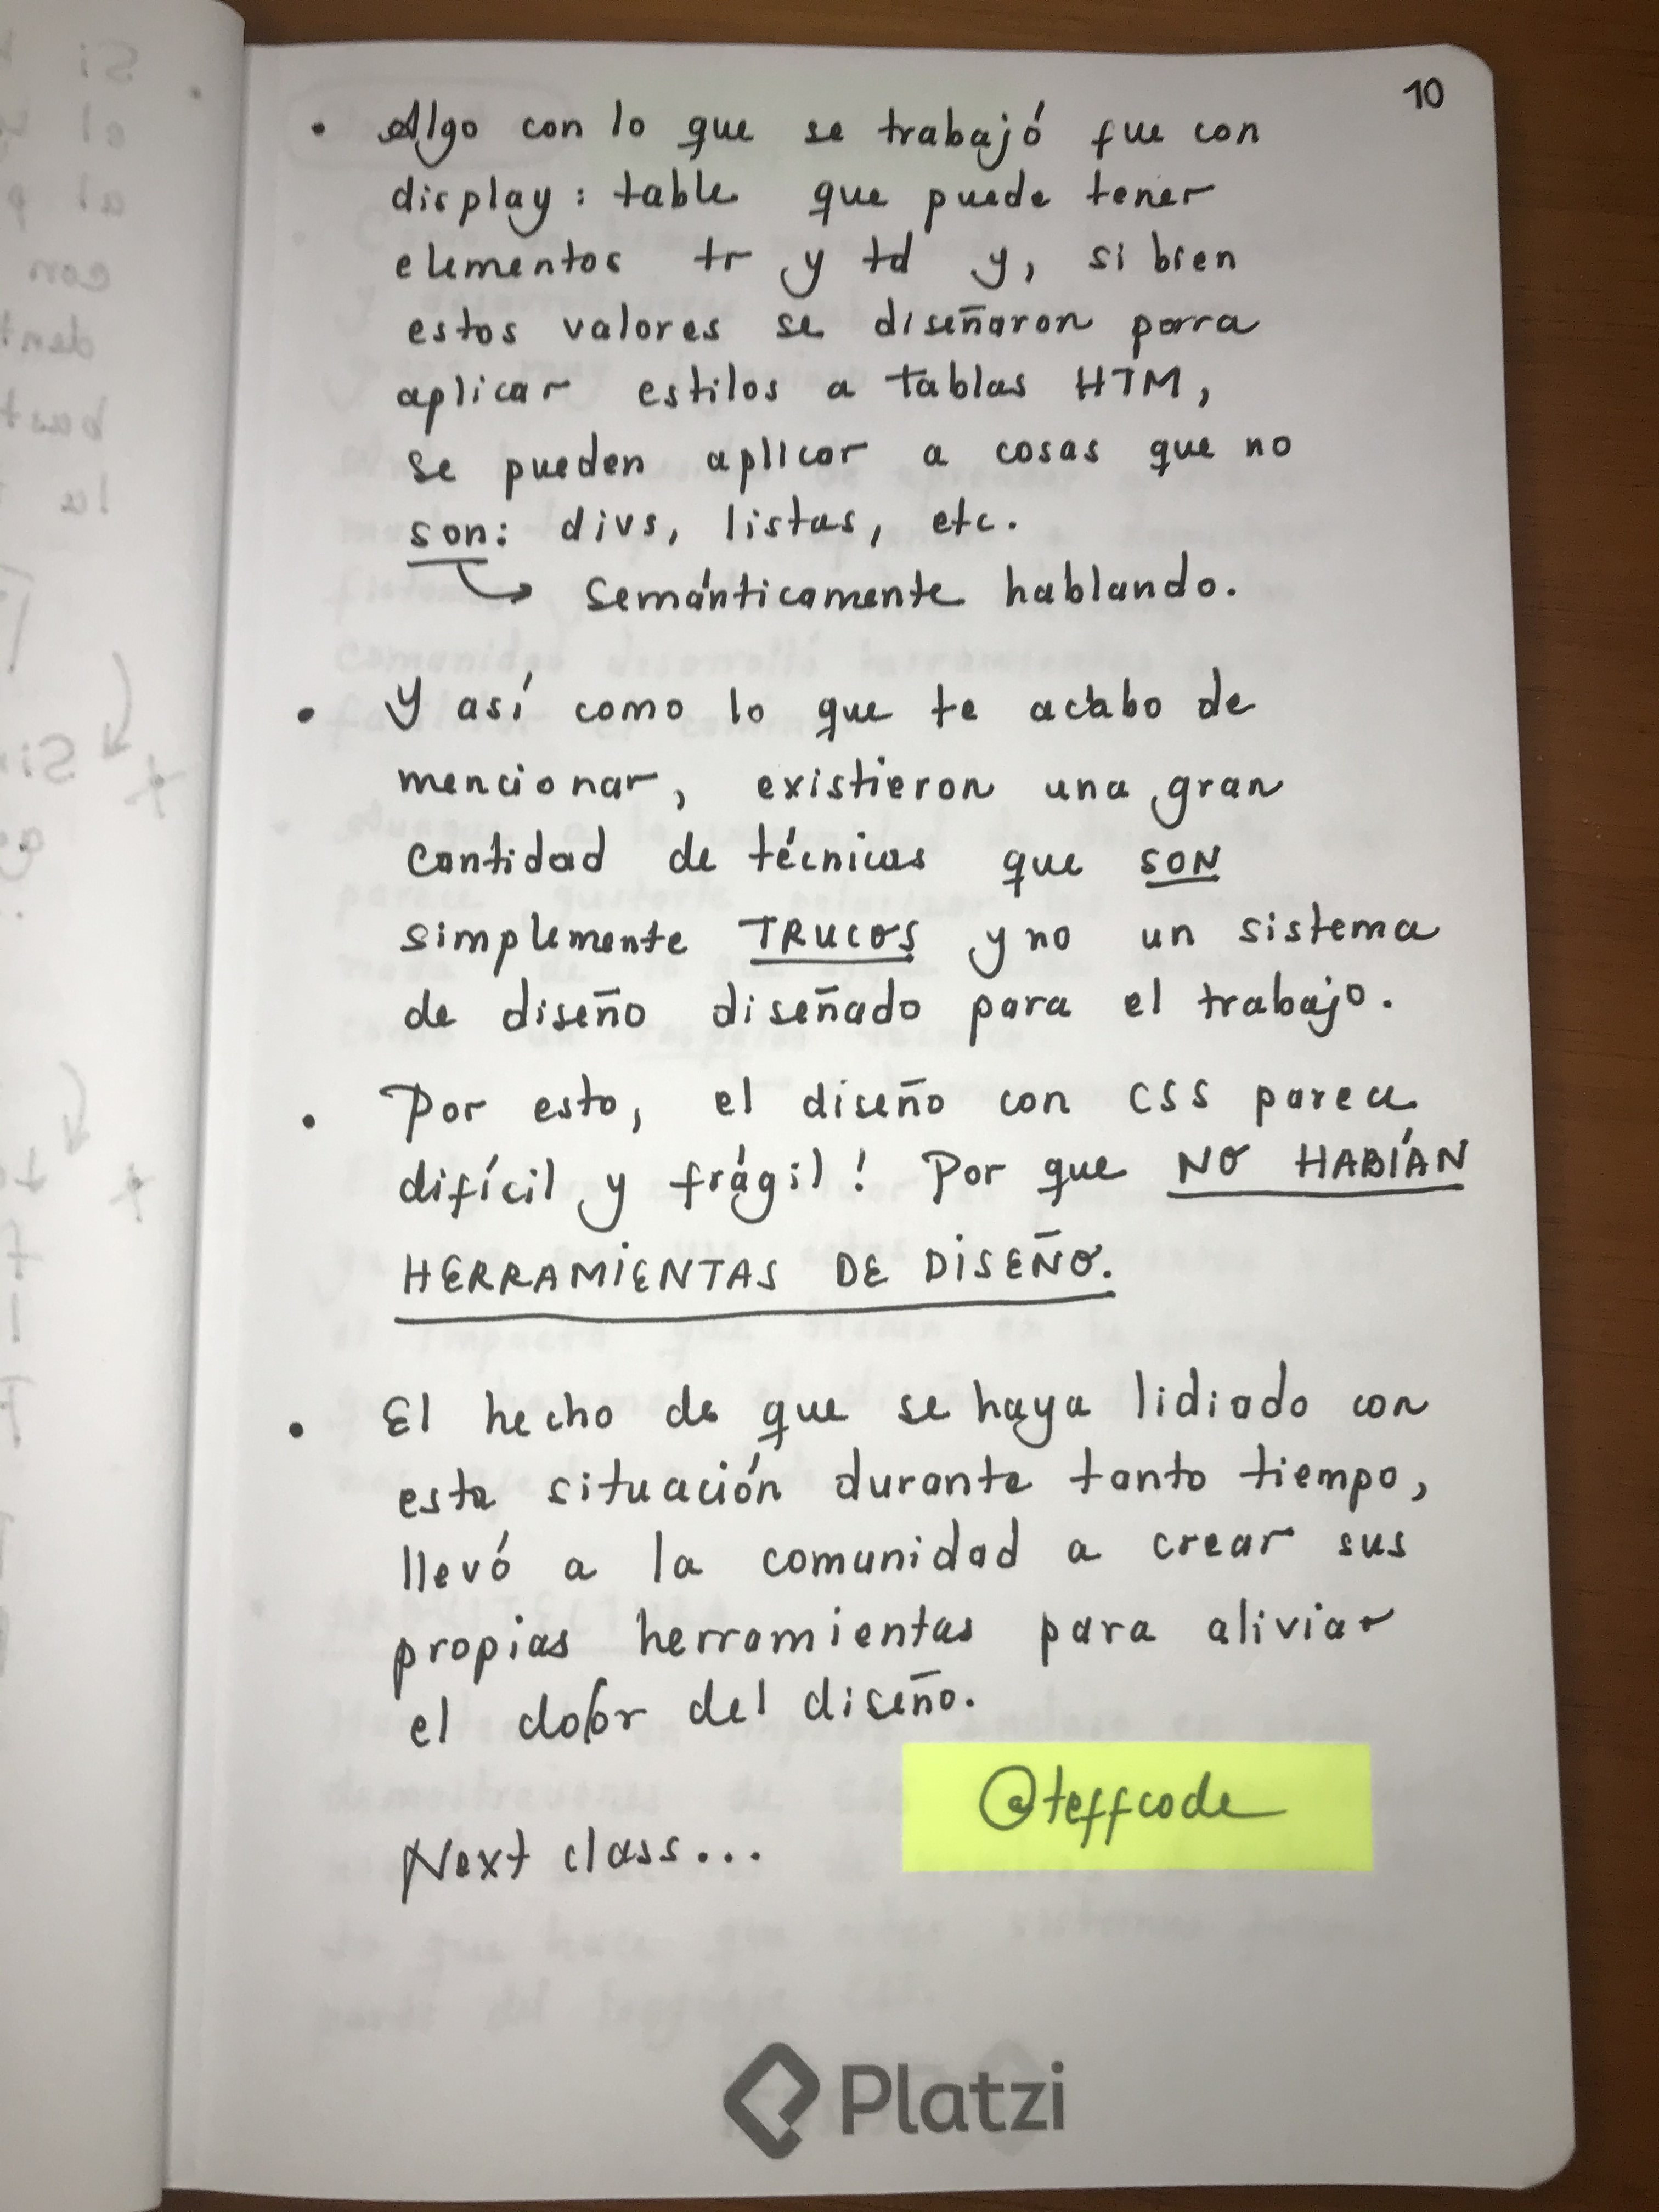 10
• Algo con lo que se trabajó fue con
display: table que puede tener
elementos tr y td y, si bien
estos valores se diseñaron para
aplicar estilos a tablas HTM,
se pueden aplicar a cosas que no
son: divs, listas, etc.
↳ Semánticamente hablando.
• Y así como lo que te acabo de
mencionar, existieron una gran
cantidad de técnicas que SON
simplemente TRUCOS y no un sistema
de diseño diseñado para el trabajo.
• Por esto, el diseño con CSS parece
difícil y frágil! Por que NO HABÍAN
HERRAMIENTAS DE DISEÑO.
• El hecho de que se haya lidiado con
esta situación durante tanto tiempo,
llevó a la comunidad a crear sus
propias herramientas para aliviar
el dolor del diseño.
@teffcode
Next class...
Platzi